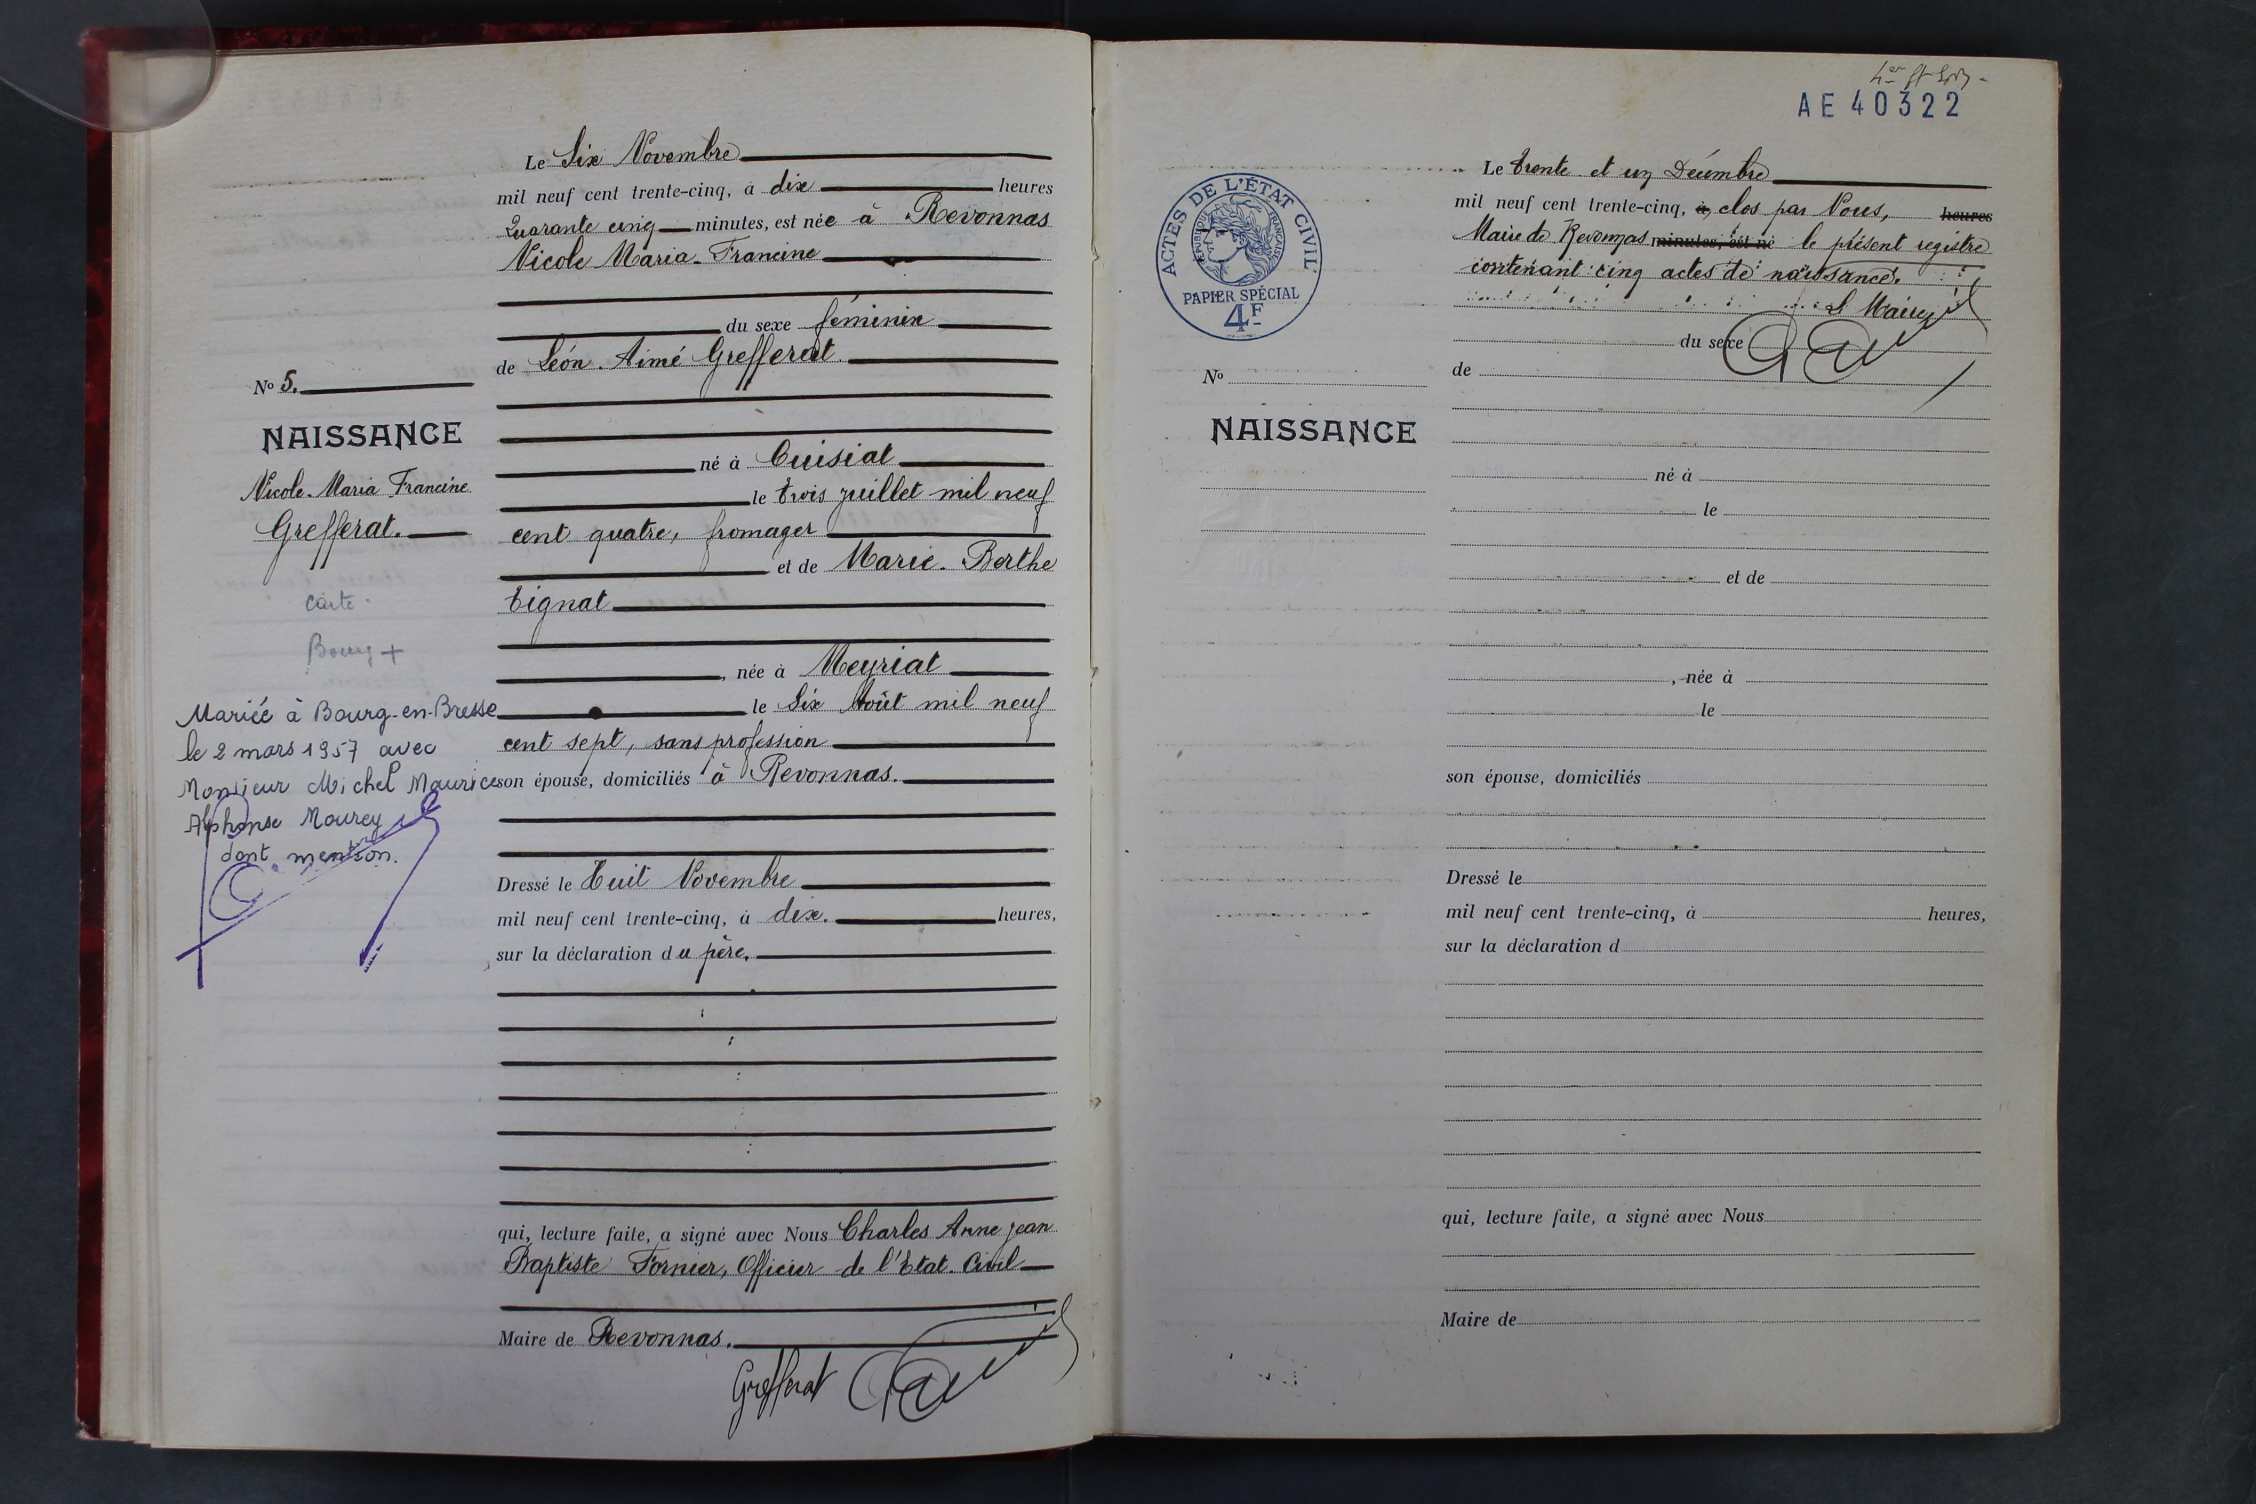 Le Six Novembre
mil neuf cent trente-cinq, à dix heures
Quarante cinq minutes, est née à Revonnas
Nicole Maria-Francine
du sexe féminin
de Léon Aimé Grefferat
né à Cuisiat
le trois juillet mil neuf
cent quatre, fromager
et de Marie-Berthe
Tignat
, née à Meyriat
le Six Août mil neuf
cent sept, sans profession
son épouse, domiciliés à Revonnas.
Dressé le Huit Novembre
mil neuf cent trente-cinq, à dix. heures,
sur la déclaration du père.
qui, lecture faite, a signé avec Nous Charles Anne Jean
Baptiste Fornier, Officier de l'Etat-Civil
Maire de Revonnas.
Grefferat
No 5.
NAISSANCE
Nicole-Maria Francine
Grefferat.
carte
Bourg +
Mariée à Bourg-en-Bresse
le 2 mars 1957 avec
Monsieur Michel Maurice
Alphonse Mourey
dont mention.
AE 40322
ACTES DE L'ÉTAT CIVIL
RÉPUBLIQUE FRANÇAISE
PAPIER SPÉCIAL
4F
Le trente et un Décembre
mil neuf cent trente-cinq, à clos par Nous, heures
Maire de Revonnas minutes, est né le présent registre
contenant cinq actes de naissance.
Le Maire
du sexe
de
No
NAISSANCE
né à
le
et de
, née à
le
son épouse, domiciliés
Dressé le
mil neuf cent trente-cinq, à heures,
sur la déclaration d
qui, lecture faite, a signé avec Nous
Maire de